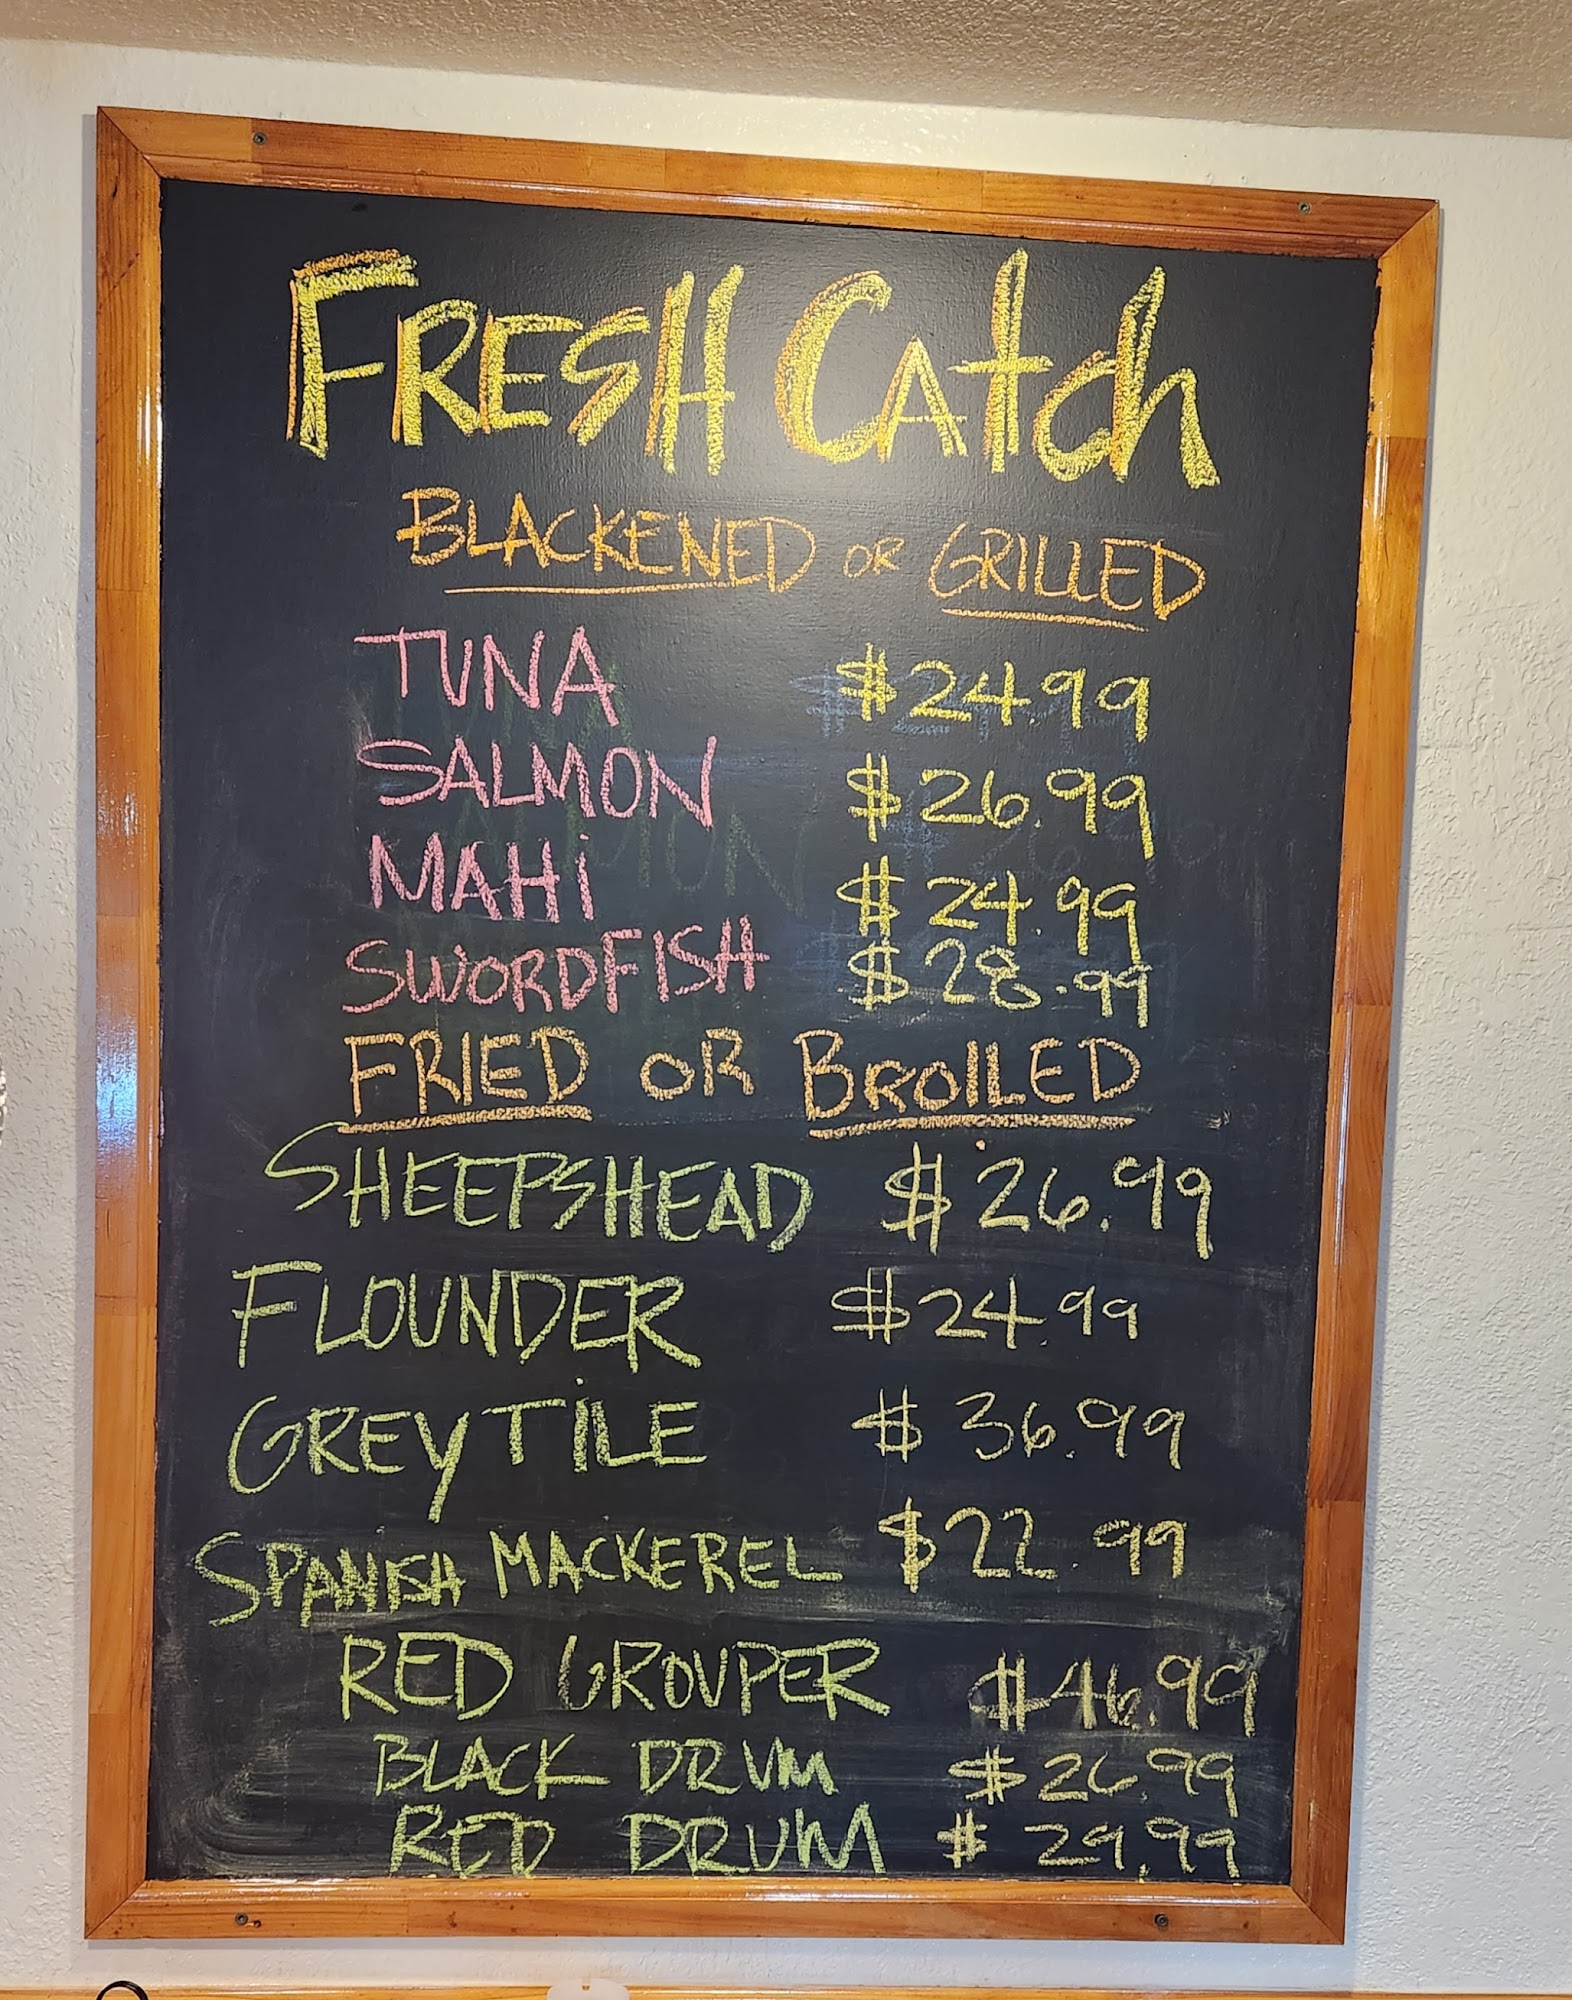 FRESH CAtch
BLACKENED OR GRILLED
TUNA $24.99
SALMON $26.99
MAHi $24.99
SWORDFISH $28.99
FRIED OR BROILED
SHEEPSHEAD $26.99
FLOUNDER $24.99
GREY TiLE $36.99
SPANISH MACKEREL $22.99
RED GROUPER $46.99
BLACK DRUM $26.99
RED DRUM $29.99